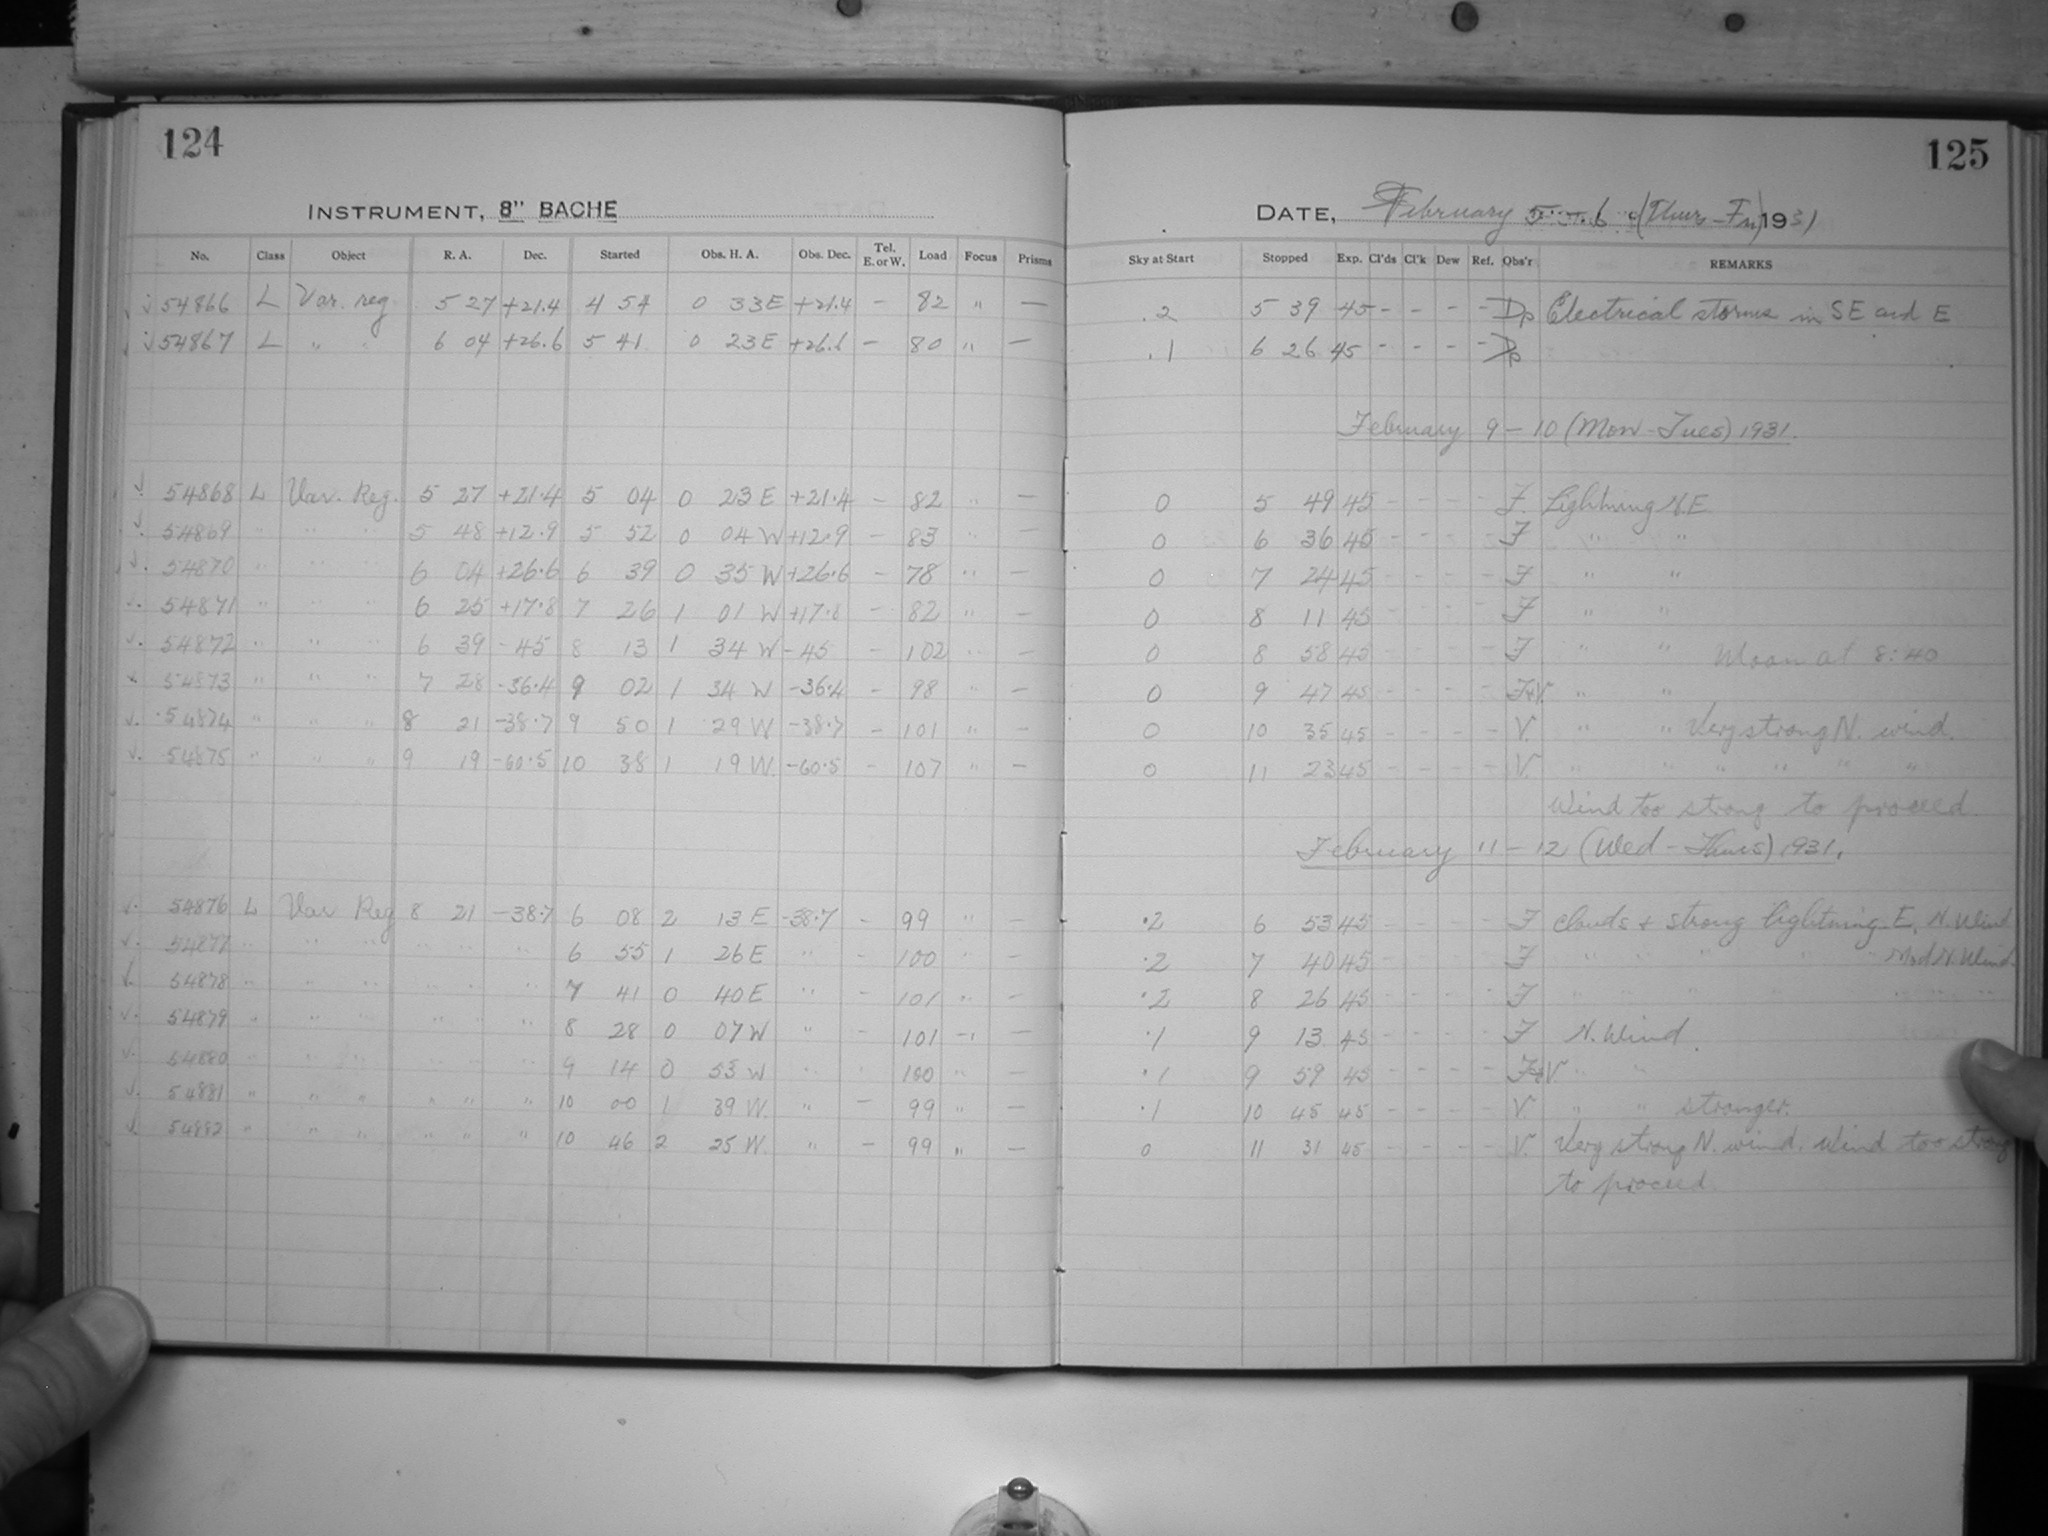 124
INSTRUMENT, 8" BACHE
No. Class Object R. A. Dec. Started Obs. H. A. Obs. Dec. Tel. E. or W. Load Focus Prisms
√ 54866 L Var. reg 5 27 +21.4 4 54 0 33 E +21.4 - 82 " —
√ 54867 L " " 6 04 +26.6 5 41 0 23 E +26.6 - 80 " —
√ 54868 L Var. Reg. 5 27 +21.4 5 04 0 23 E +21.4 - 82 " —
√ 54869 " " " 5 48 +12.9 5 52 0 04 W +12.9 - 83 " —
√ 54870 " " " 6 04 +26.6 6 39 0 35 W +26.6 - 78 " —
√ 54871 " " " 6 25 +17.8 7 26 1 01 W +17.8 - 82 " —
√ 54872 " " " 6 39 -45 8 13 1 34 W -45 - 102 " —
54873 " " " 7 28 -36.4 9 02 1 34 W -36.4 - 98 " —
√ 54874 " " " 8 21 -38.7 9 50 1 29 W -38.7 - 101 " —
√ 54875 " " " 9 19 -60.5 10 38 1 19 W. -60.5 - 107 " —
√ 54876 L Var Reg 8 21 -38.7 6 08 2 13 E -38.7 - 99 " —
√ 54877 " " " " " " 6 55 1 26 E " - 100 " —
√ 54878 " " " " " " 7 41 0 40 E " - 101 " —
√ 54879 " " " " " " 8 28 0 07 W " - 101 " —
√ 54880 " " " " " " 9 14 0 53 W " - 100 " —
√ 54881 " " " " " " 10 00 1 39 W. " - 99 " —
√ 54882 " " " " " " 10 46 2 25 W. " - 99 " —
125
DATE, February 5-6 (Thur-Fri) 1931
Sky at Start Stopped Exp. Cl'ds Cl'k Dew Ref. Obs'r REMARKS
.2 5 39 45 - - - - Dp Electrical storms in SE and E
.1 6 26 45 - - - - Dp
February 9-10 (Mon-Tues) 1931.
0 5 49 45 - - - - F. Lightning N.E.
0 6 36 45 - - - - F " "
0 7 24 45 - - - - F " "
0 8 11 45 - - - - F " "
0 8 58 45 - - - - F " " Moon at 8:40
0 9 47 45 - - - - F+V. " "
0 10 35 45 - - - - V. " " Very strong N. wind.
0 11 23 45 - - - - V. " " " " " "
Wind too strong to proceed.
February 11-12 (Wed-Thurs) 1931.
.2 6 53 45 - - - - F Clouds + strong lightning E, N. Wind
.2 7 40 45 - - - - F " " " " " Mod N. Wind.
.2 8 26 45 - - - - F " " " " " " " "
.1 9 13 45 - - - - F N. Wind.
.1 9 59 45 - - - - F+V " "
.1 10 45 45 - - - - V. " " stronger.
0 11 31 45 - - - - V. Very strong N. wind. Wind too strong
to proceed.